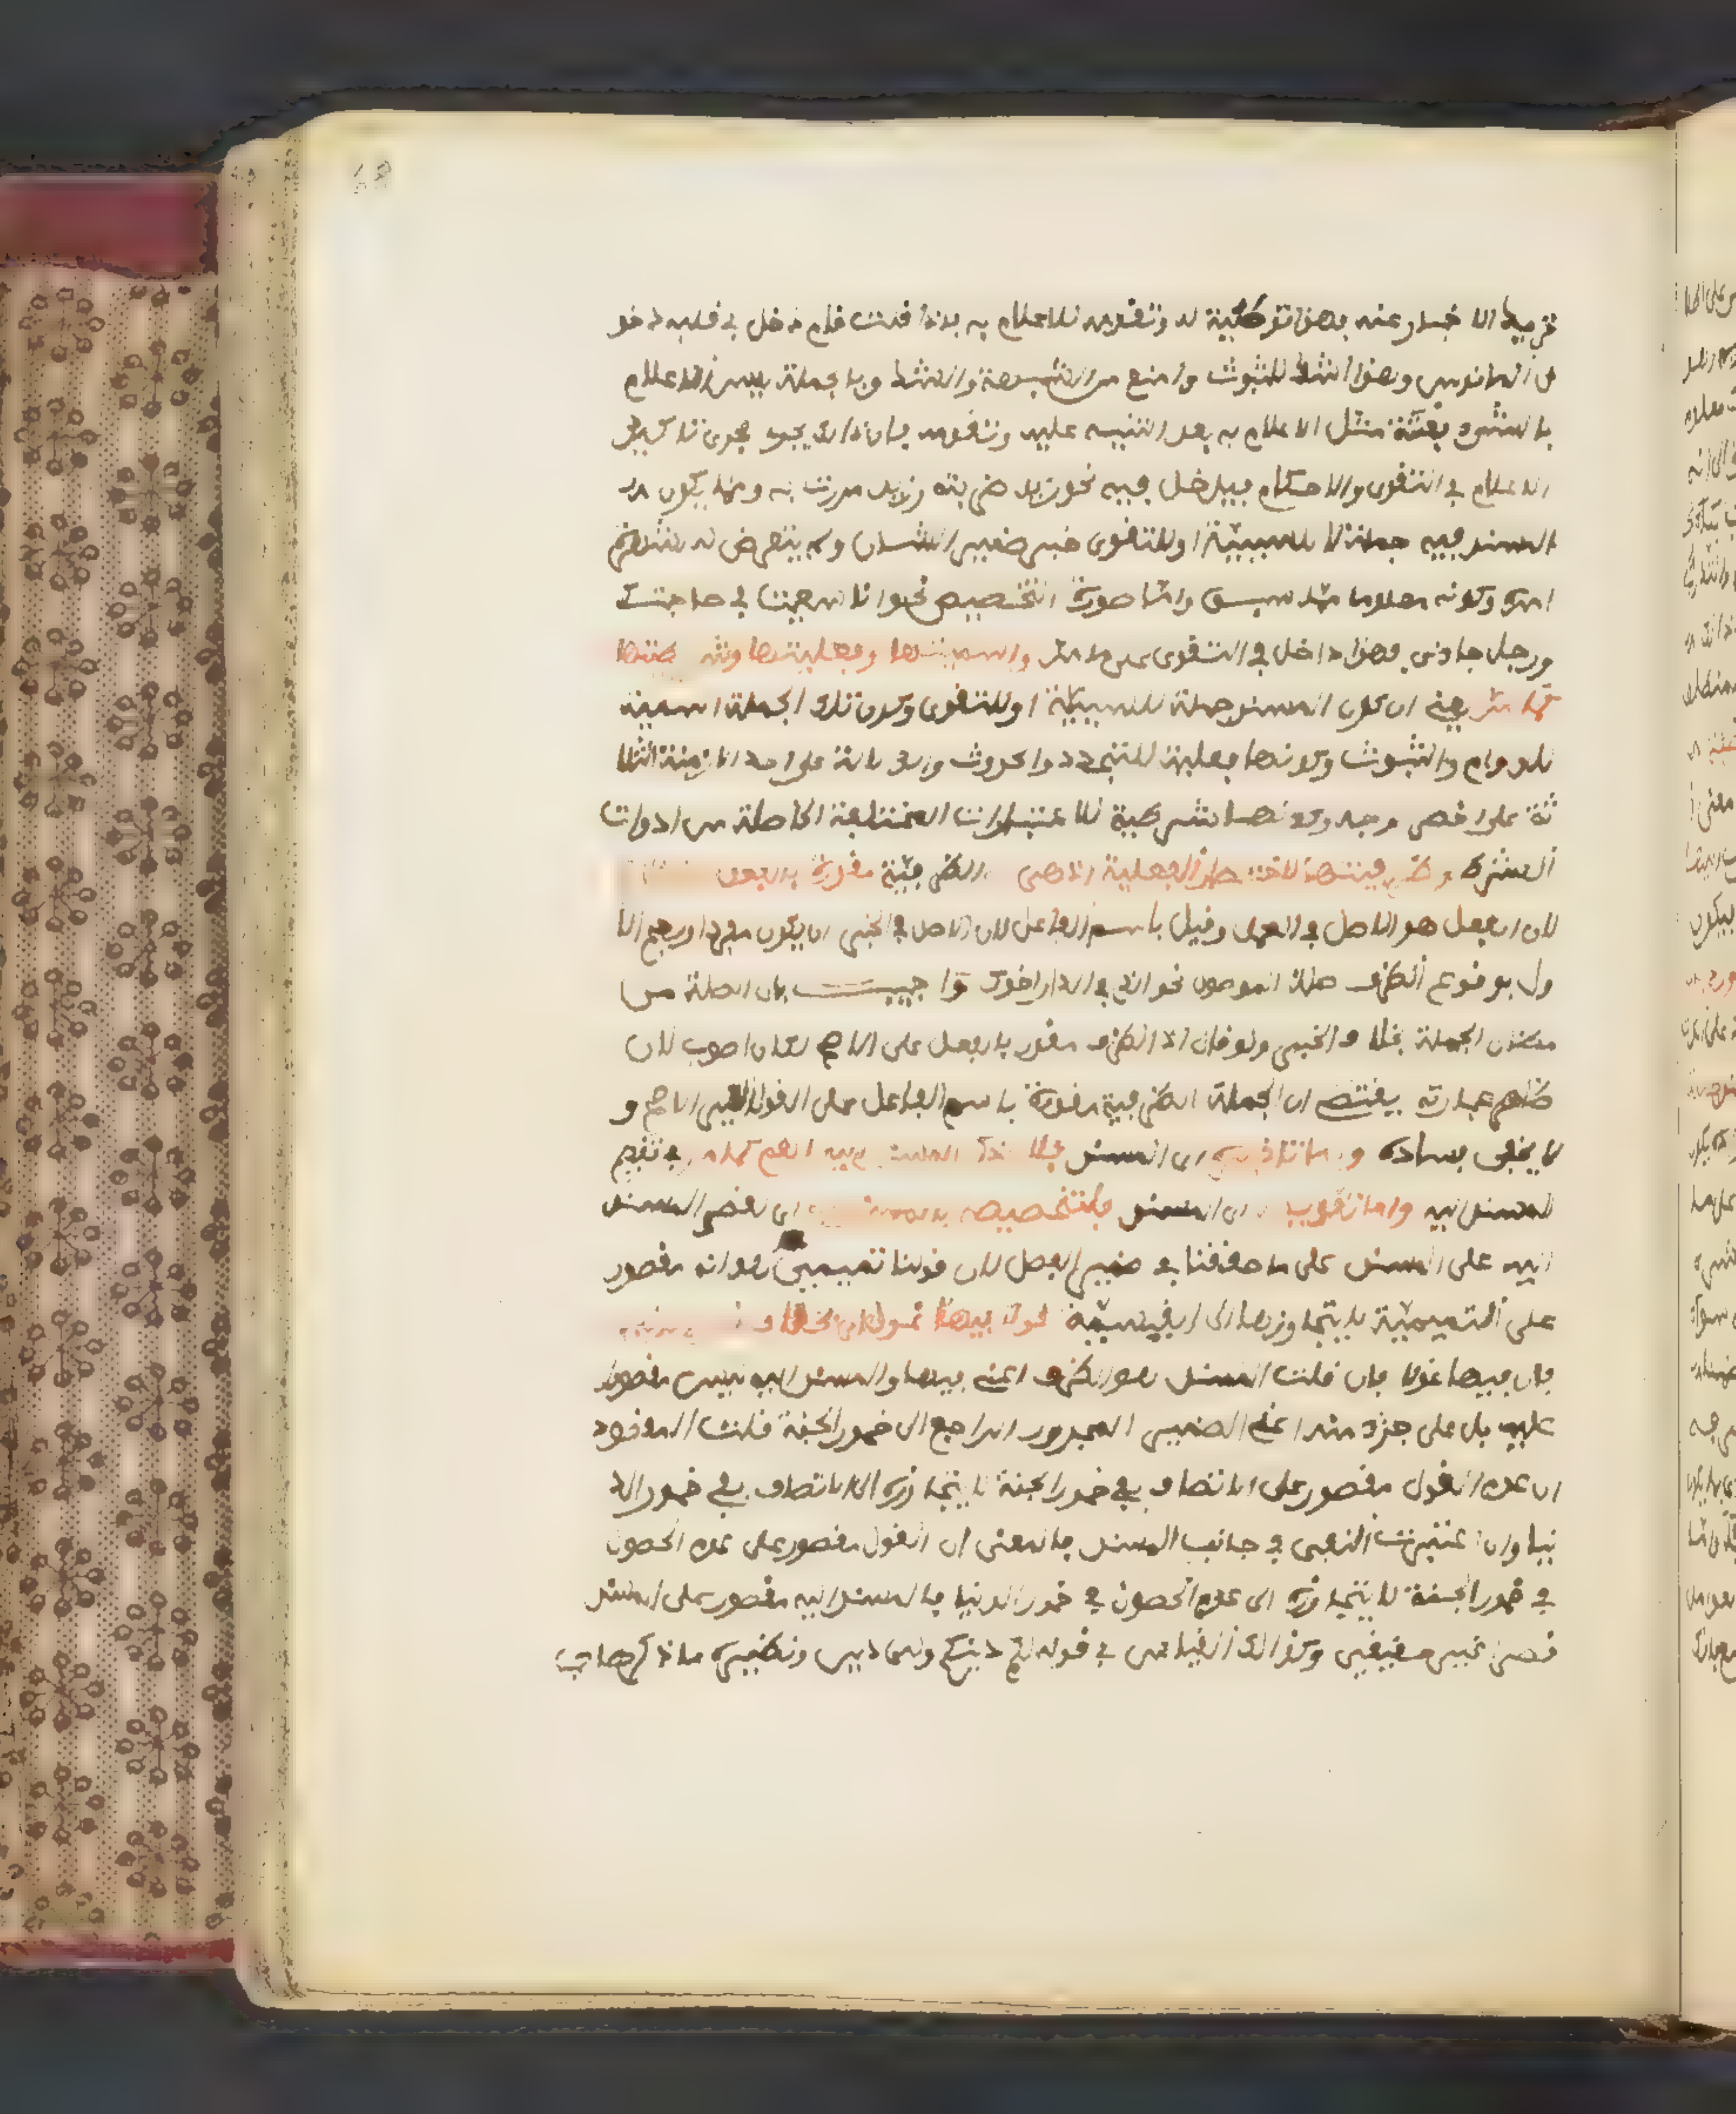 تريد الاخبار عنه فهذا توطئة له وتقدمة للاعلام به فاذا قلت قام دخل في قلبه دخو
ل المانوس وهذا اشد للثبوت وامنع من الشبهة والشك وبالجملة ليس الاعلام
بالشيء بغتة مثل الاعلام به بعد التنبيه عليه وتقدمه فان ذلك يجري مجرى تاكيد
الاعلام في التقوى والاحكام فيدخل فيه نحو زيد ضربته وزيد مررت به ومما يكون
المسند فيه جملة لا للسببية او للتقوى خبر ضمير الشان ولم يتعرض له لشهرة
امره وكونه معلوما مما سبق واما صورة التخصيص نحو انا سعيت في حاجتك
ورجل جاءني فهذا داخل في التقوى على ما مر واسميتها وفعليتها وشرطيتها
لما مر يعني ان كون المسند جملة للسببية او للتقوى وكون تلك الجملة اسمية
للدوام والثبوت وكونها فعلية للتجدد والحدوث والدلالة على احد الازمنة الثلا
ثة على اخصر وجه وكونها شرطية للاعتبارات المختلفة الحاصلة من ادوات
الشرط وظرفيتها لاختصار الفعلية اذ هي الظرفية مقدرة بالفعل
لان الفعل هو الاصل في العمل وقيل باسم الفاعل لان الاصل في الخبر ان يكون مفردا ورجح الا
ول بوقوع الظرف صلة الموصول نحو الذي في الدار اخوك واجيب بان الصلة من
مظان الجملة بخلاف الخبر ولو قال اذ الظرف مقدر بالفعل على الاصح لكان اصوب لان
ظاهر عبارته يقتضي ان الجملة الظرفية مقدرة باسم الفاعل على القول الغير الاصح و
لا يخفى فساده واما تاخيره اي المسند فلان ذكر المسند اليه اهم كما مر في تقديم
المسند اليه واما تقديمه اي المسند فلتخصيصه بالمسند اليه اي لقصر المسند
اليه على المسند على ما حققنا في ضمير الفصل لان قولنا تميمي هو انه مقصور
على التميمية لا يتجاوزها الى القيسية نحو لا فيها غول اي بخلاف خمور الدنيا
فان فيها غولا فان قلت المسند هو الظرف اعني فيها والمسند اليه ليس مقصور
عليه بل على جزء منه اعني الضمير المجرور الراجع الى خمور الجنة قلت المقصود
ان عدم الغول مقصور على الاتصاف بفي خمور الجنة لا يتجاوزه الى الاتصاف بفي خمور الد
نيا وان اعتبرت النفي في جانب المسند فالمعنى ان الغول مقصور على عدم الحصول
في خمور الجنة لا يتجاوزه الى عدم الحصول في خمور الدنيا فالمسند اليه مقصور على المسند
قصرا غير حقيقي وكذلك القياس في قوله لكم دينكم ولي دين ونظيره ما ذكره صاحب